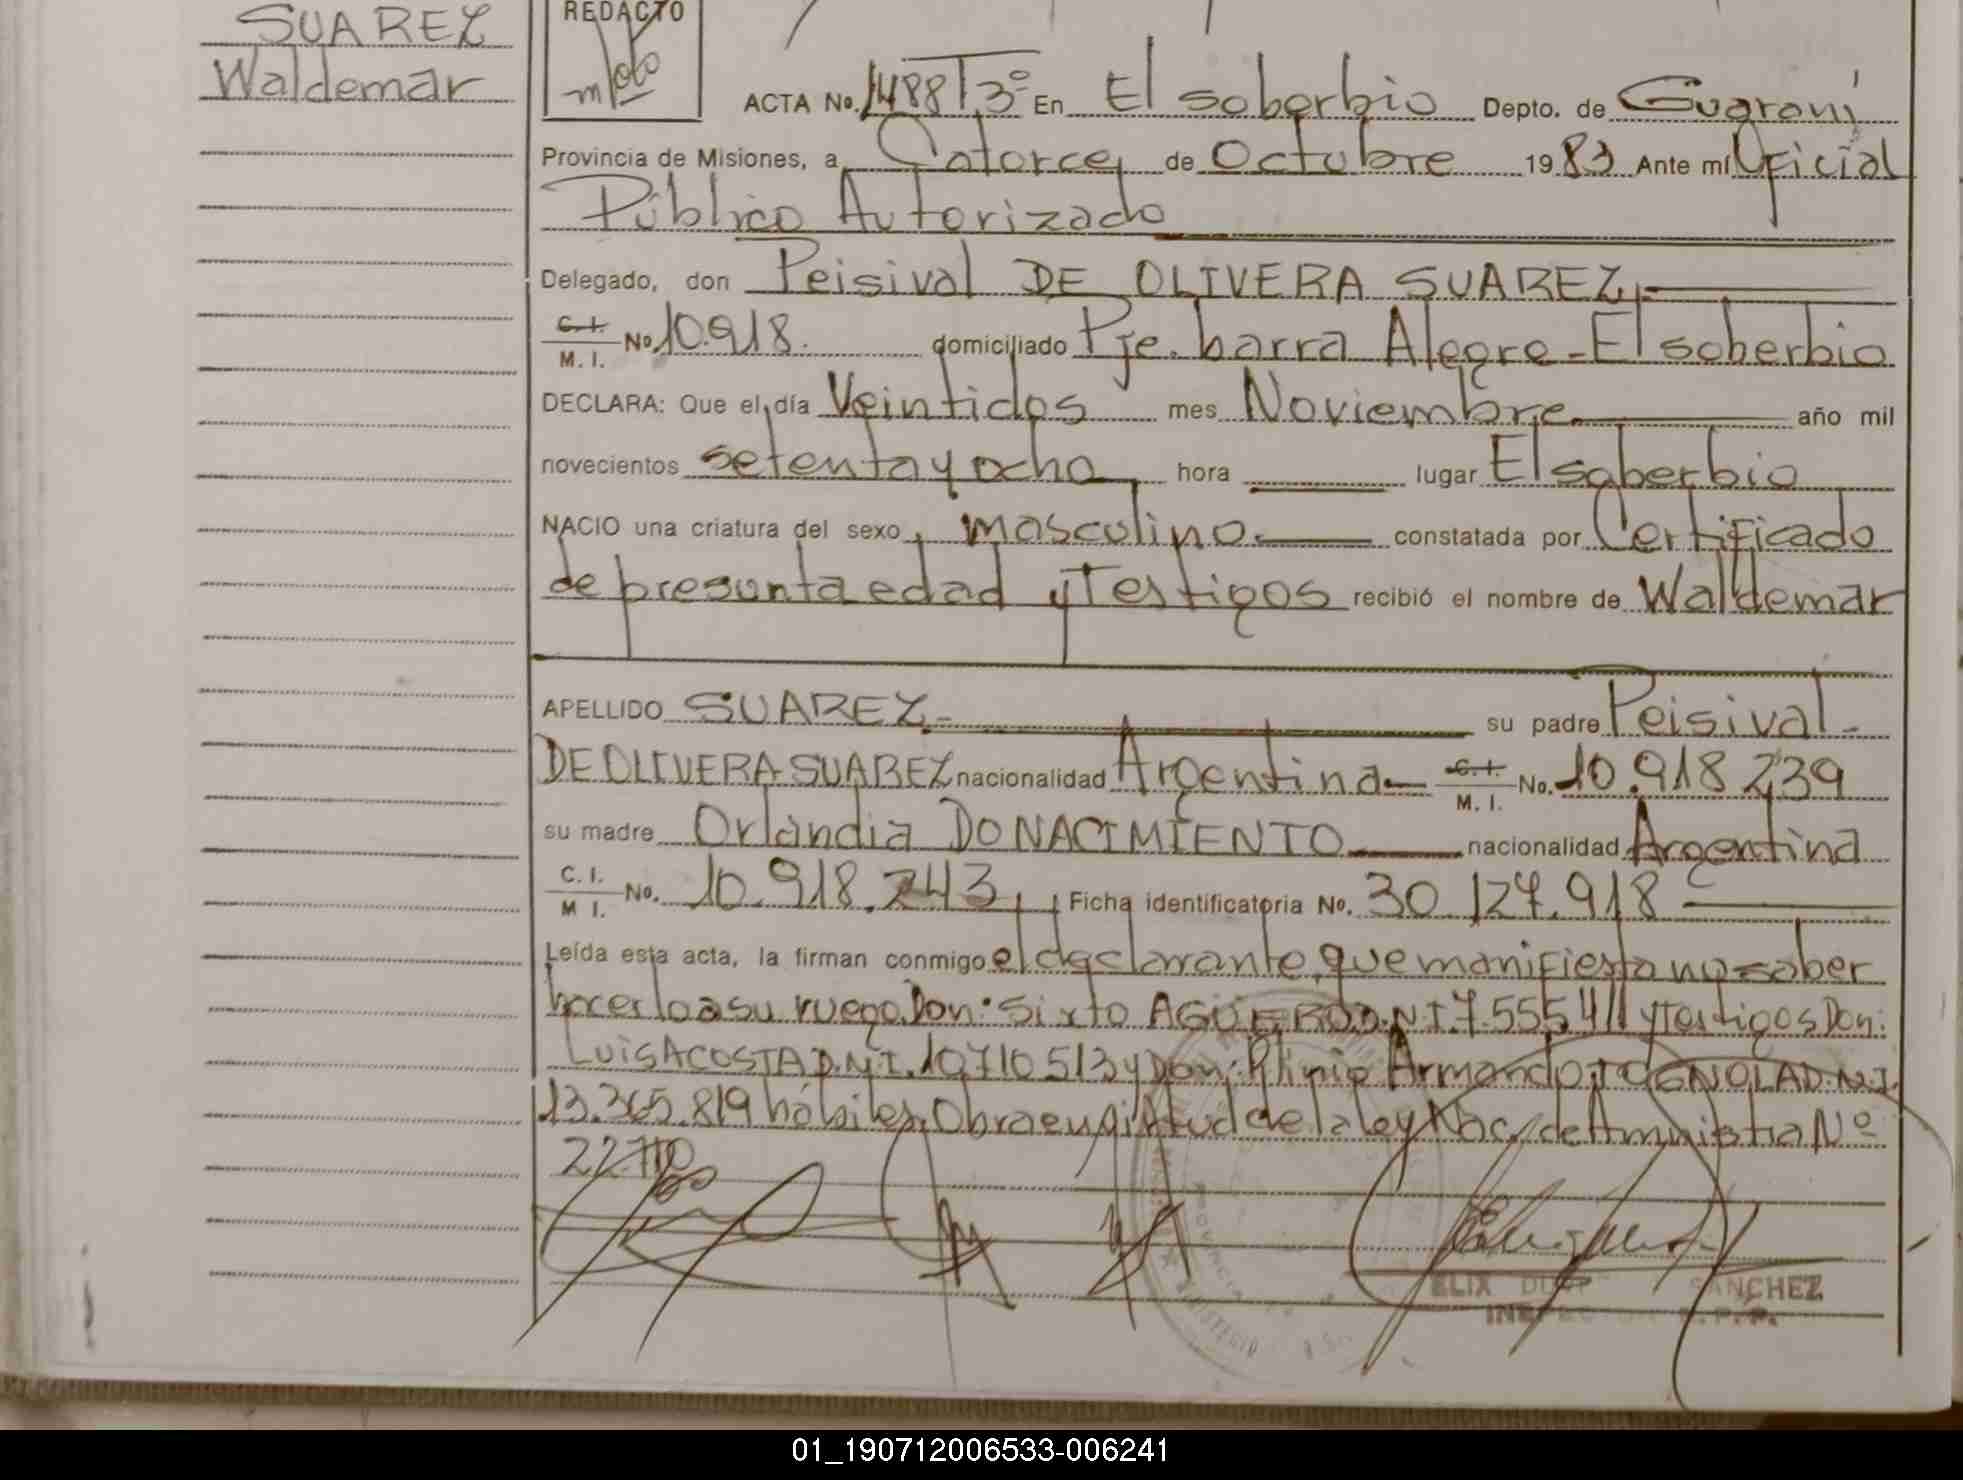 SUAREZ
Waldemar
REDACTO
ACTA No. 1488 T 3º En El soberbio Depto. de Guaraní
Provincia de Misiones, a Catorce de Octubre 1983 Ante mí Oficial
Público Autorizado
Delegado, don Peisival DE OLIVERA SUAREZ
C.I. M.I. No. 10.918. domiciliado Pje. barra Alegre - El soberbio
DECLARA: Que el día Veintidos mes Noviembre año mil
novecientos setenta y ocho hora lugar El soberbio
NACIO una criatura del sexo masculino constatada por Certificado
de presunta edad y Testigos recibió el nombre de Waldemar
APELLIDO SUAREZ su padre Peisival
DE OLIVERA SUAREZ nacionalidad Argentina C.I. M.I. No. 10.918 239
su madre Orlandia DO NACIMIENTO nacionalidad Argentina
C.I. M I. No. 10.918.243 Ficha identificatoria No. 30.127.918
Leída esta acta, la firman conmigo el declarante, que manifiesta no saber
hacerlo a su ruego Don: Sixto AGÜERO D.N.I. 7.555411 y Testigos Don:
LUIS ACOSTA D.N.I. 10710513 y Don: Plinio Armando TOGNOLA D.N.I.
13.365.819 hábiles, Obra en virtud de la ley Nac. de Amnistia Nº
SANCHEZ
01_190712006533-006241